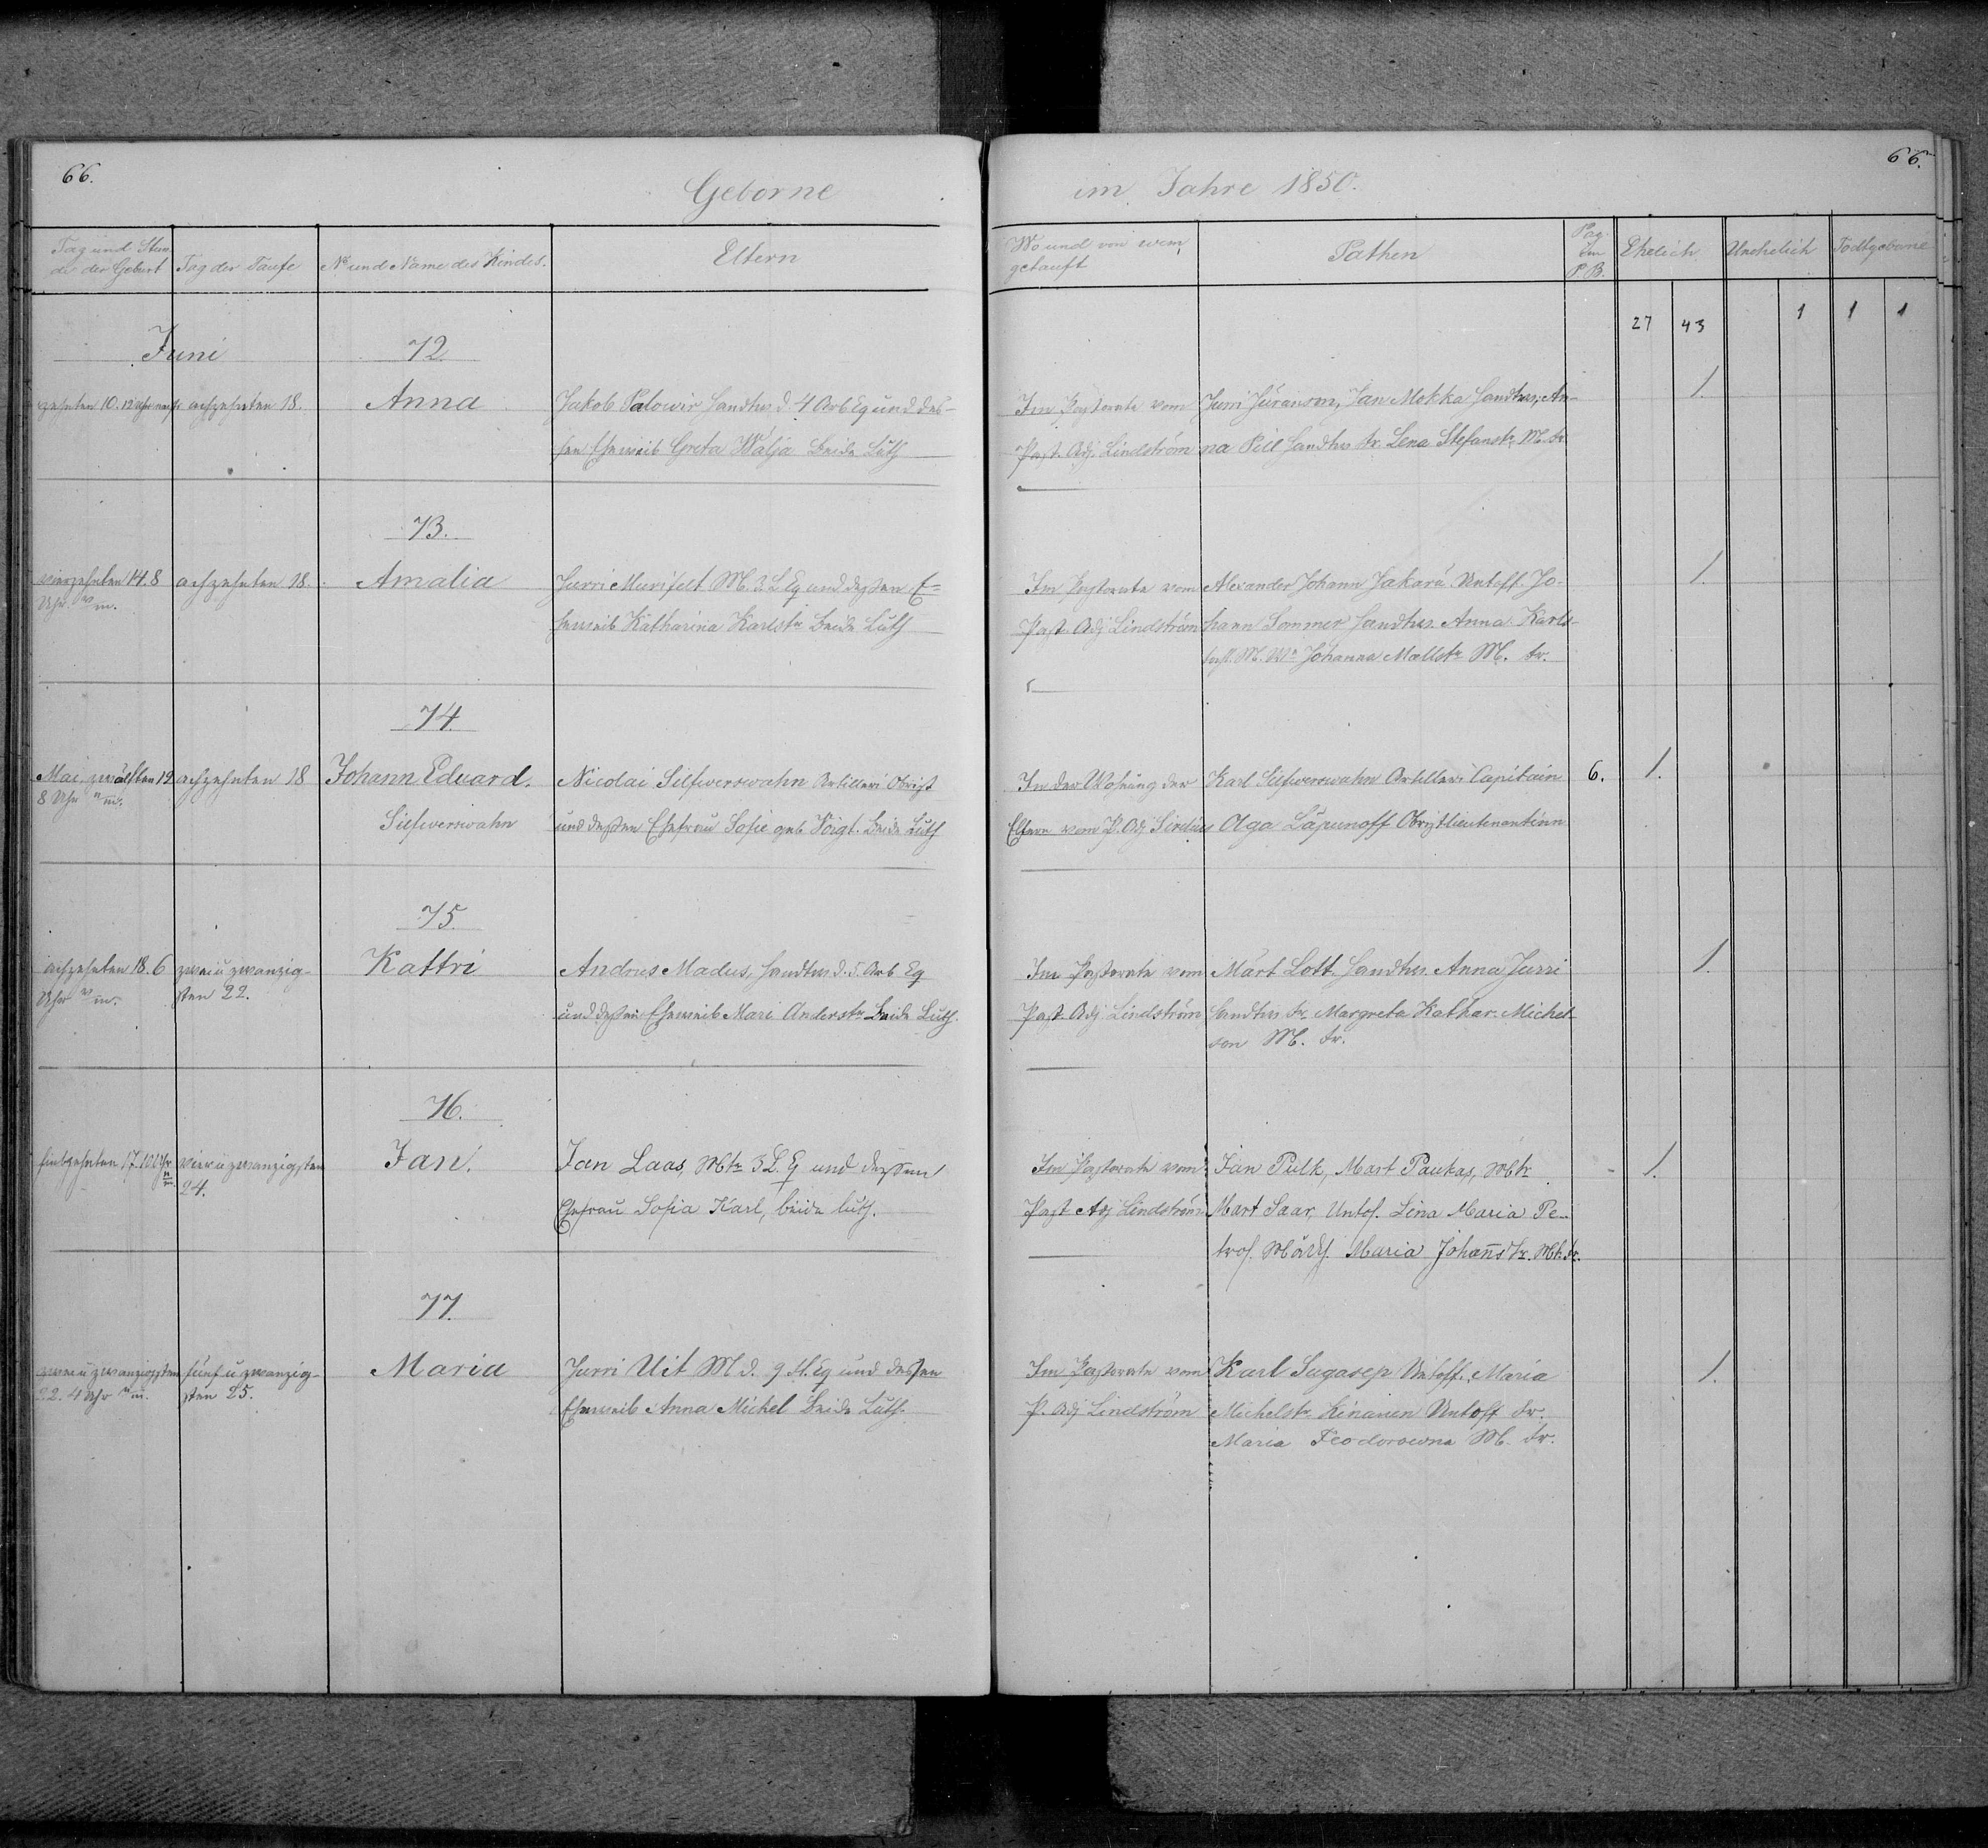 66.
66.
Geborne
im Jahre 1850.
Tag und Stun-
de der Geburt
Tag der Taufe
No und Name des Kindes.
Eltern
Wo und von wem
getauft
Pathen
Pag.
im
P. B.
Ehelich
Unehelich
Todtgeborne
27 43 1 1 1
Juni
72.
zehnten 10. 12 Uhr
achzehnten 18.
Anna
Jakob Palowir Handtw. d. 4 Arb Eq und des-
sen Eheweib Greta Wälja beide Luth
Im Pastorate vom
Past. Adj. Lindström
Jurri Jüranson, Jan Mokka Handtw. An-
na Pill Handtw. tr. Lena Stefanstr M. tr.
1.
73.
vierzehnten 14. 8
Uhr
achzehnten 18.
Amalia
Jurri Muriselt M. 3. L. Eq und dessen E=
heweib Katharina Karlstr beide Luth
Im Pastorate vom
Past. Adj Lindström
Alexander Johann Jakara Untoff. Jo-
hann Sommer Handtw. Anna Karls-
M. We Johanna Mallstr M. tr.
1.
74.
Mai zwölften 12
8 Uhr
achzehnten 18
Johann Eduard.
Silfwerswahn
Nicolai Silfwerswahn Artilleri Obrist
und dessen Ehefrau Sofie geb Voigt. beide Luth
In der Wohnung der
Eltern vom P. Adj Sirelius
Karl Silfwerswahn Artilleri Capitain
Olga Läpunoff Obristlieutenantinn
6.
1.
75.
achzehnten 18. 6
Uhr
zwei u zwanzig-
sten 22.
Kattri
Andrus Madus, Handtw. d. 5. Arb Eq
und dessen Eheweib Mari Anderstr beide Luth.
Im Pastorate vom
Past. Adj Lindström
Märt Lott Handtw. Anna Jurri
Handtw tr. Margreta Kathar. Michel-
son M. tr.
1.
76.
siebzehnten 17. 10 Uhr
vier u zwanzigsten
24.
Jan.
Jan Laas, Mtr 3 L. Eq und dessen
Ehefrau Sofia Karl, beide luth.
Im Pastorate vom
Past Adj Lindström
Jan Pulk, Mart Paukas, Mtr
Mart Saar, Untof. Lina Maria Pe-
trof. Maria Johannstr. Mt. tr.
1.
77.
zwei u zwanzigsten
22. 4 Uhr
fünf u zwanzig-
sten 25.
Maria
Jurri Uit M d. 9 Fl. Eq und dessen
Eheweib Anna Michel beide Luth.
Im Pastorate vom
P. Adj Lindström
Karl Sugasep Untoff. Maria
Michelstr. Kinanen Untoff tr.
Maria Feodorowna M. tr.
1.